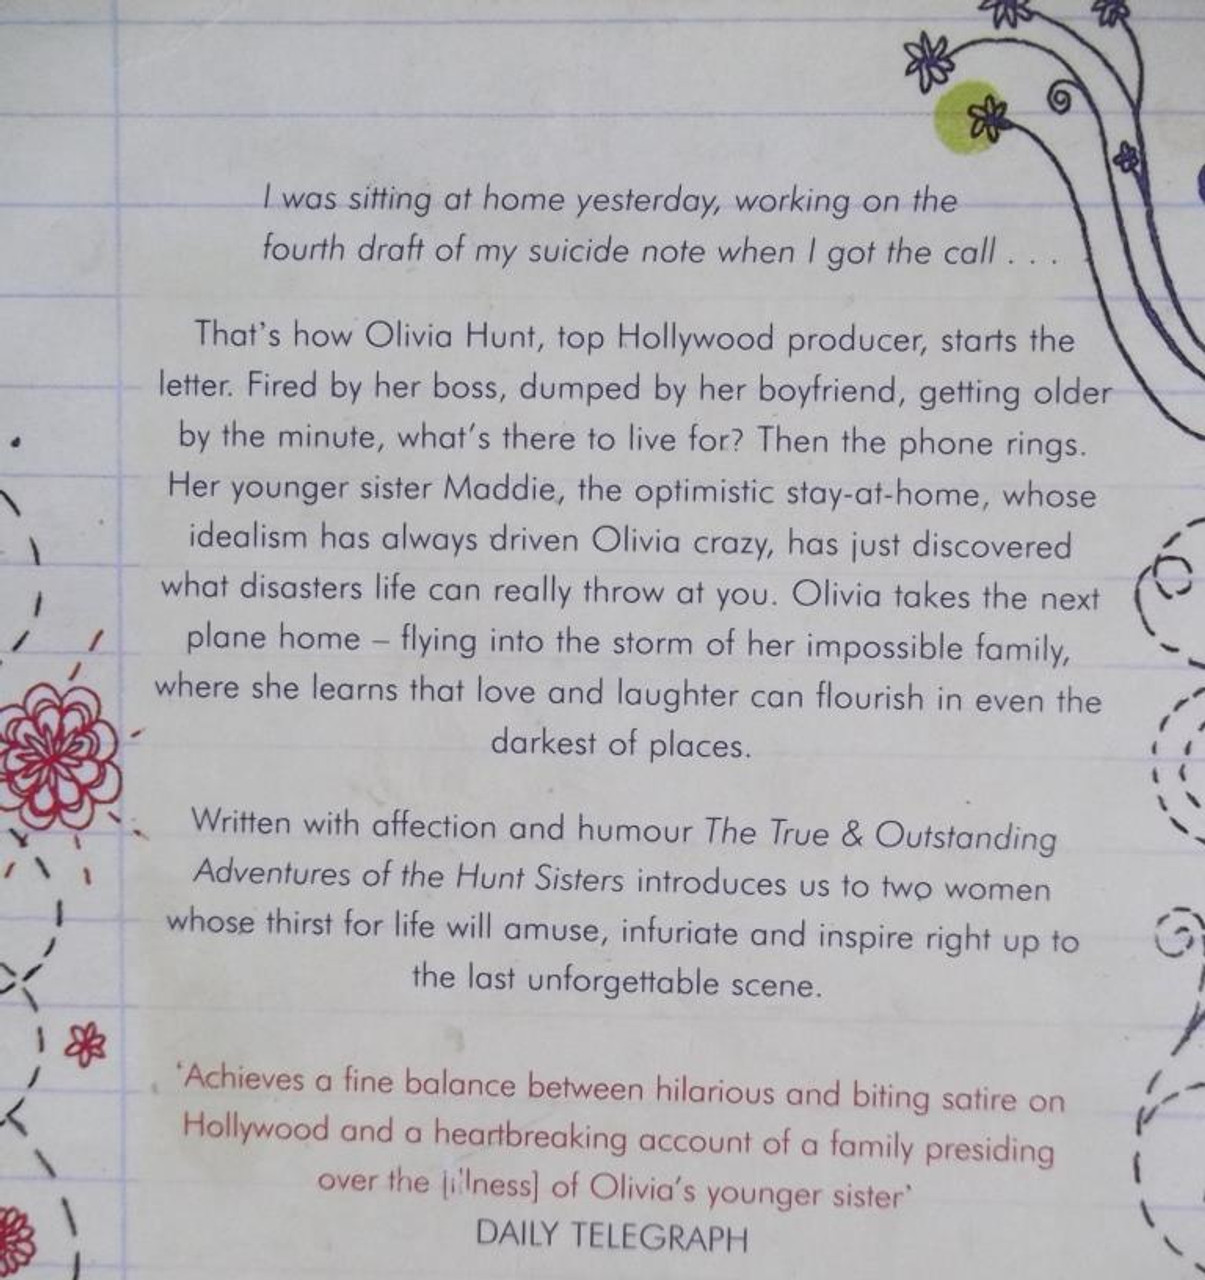 I was sitting at home yesterday, working on the
fourth draft of my suicide note when I got the call . . .
That's how Olivia Hunt, top Hollywood producer, starts the
letter. Fired by her boss, dumped by her boyfriend, getting older
by the minute, what's there to live for? Then the phone rings.
Her younger sister Maddie, the optimistic stay-at-home, whose
idealism has always driven Olivia crazy, has just discovered
what disasters life can really throw at you. Olivia takes the next
plane home – flying into the storm of her impossible family,
where she learns that love and laughter can flourish in even the
darkest of places.
Written with affection and humour The True & Outstanding
Adventures of the Hunt Sisters introduces us to two women
whose thirst for life will amuse, infuriate and inspire right up to
the last unforgettable scene.
'Achieves a fine balance between hilarious and biting satire on
Hollywood and a heartbreaking account of a family presiding
over the [illness] of Olivia's younger sister'
DAILY TELEGRAPH